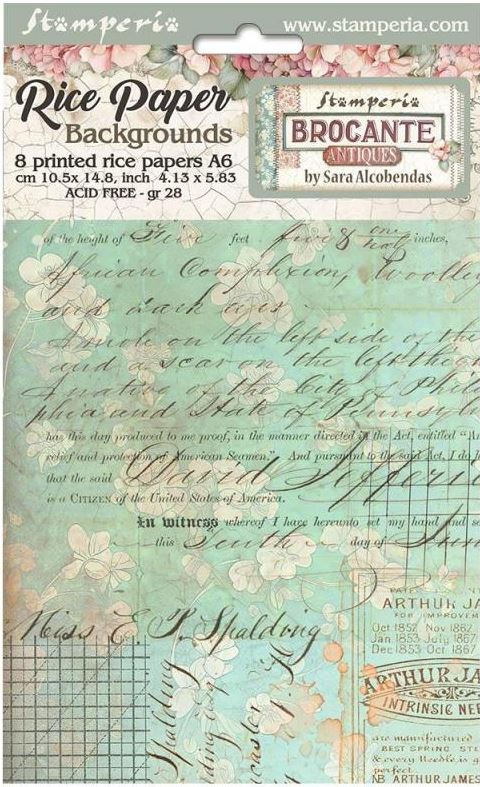 Stamperia
www.stamperia.com
Rice Paper
Backgrounds
8 printed rice papers A6
cm 10.5x 14.8, inch 4.13 x 5.83
ACID FREE - gr 28
Stamperia
BROCANTE
ANTIQUES
by Sara Alcobendas
of the height of Five feet five & one half inches,
African Complexion, Woolley
and dark eyes
A mole on the left side of the
and a scar on the left thigh
A native of the City of Phila
phia and State of Pennsylv
has this day produced to me proof, in the manner directed in the Act, entitled "An
relief and protection of American Seamen." And pursuant to the said Act, I do h
that the said David Jefferi
is a CITIZEN of the United States of America.
In witness whereof I have hereunto set my hand and se
this Tenth day of Jun
Miss E. P. Spalding
Spalding
PATE
ARTHUR JA
FOR IMPROVEM
Oct 1852 Nov 1862
Jan 1853 July 1867
Dec 1853 Oct 1867
ARTHUR JA
INTRINSIC NEE
are manufactured
BEST SPRING STE
& every Needle is g
NB ARTHUR JAMES